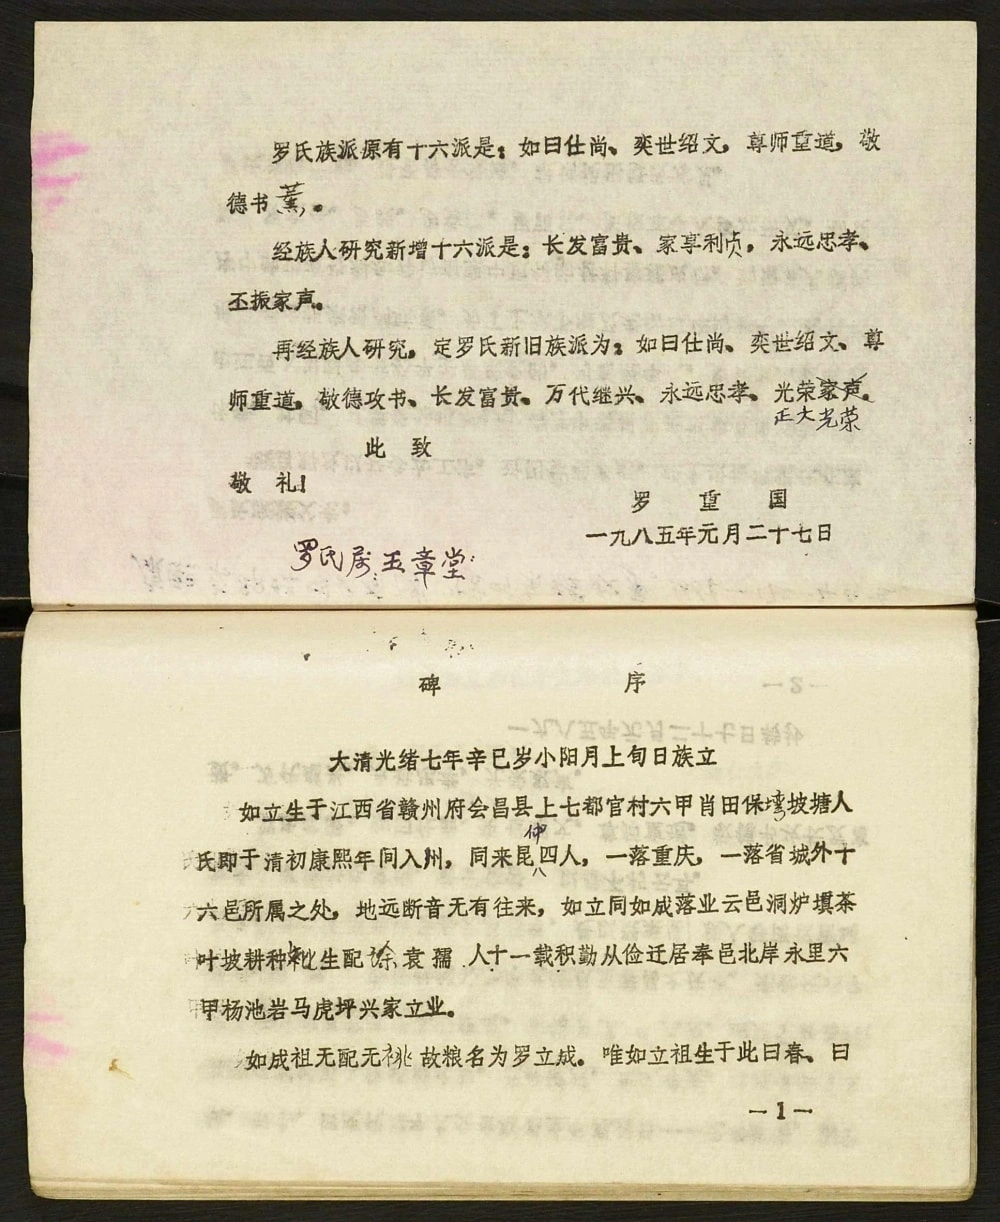 罗氏族派源有十六派是：如曰仕尚、奕世绍文，尊师重道，敬
德书薰，。
经族人研究新增十六派是：长发富贵、家享利贞，永远忠孝、
丕振家声。
再经族人研究，定罗氏新旧族派为：如曰仕尚、奕世绍文、尊
师重道，敬德攻书、长发富贵、万代继兴、永远忠孝、光荣家声。
正大光荣
此 致
敬 礼！
罗 重 国
一九八五年元月二十七日
罗氏房玉章堂
碑 序
大清光绪七年辛巳岁小阳月上旬日族立
如立生于江西省赣州府会昌县上七都官村六甲肖田保塆坡塘人
仲
氏即于清初康熙年间入州，同来昆四人，一落重庆，一落省城外十
八
六邑所属之处，地远断音无有往来，如立同如成落业云邑洞炉填茶
叶坡耕种 生配徐袁孺人十一载积勤从俭迁居奉邑北岸永里六
甲杨池岩马虎坪兴家立业。
如成祖无配无祧故粮名为罗立成。唯如立祖生于此曰春、曰
—1—